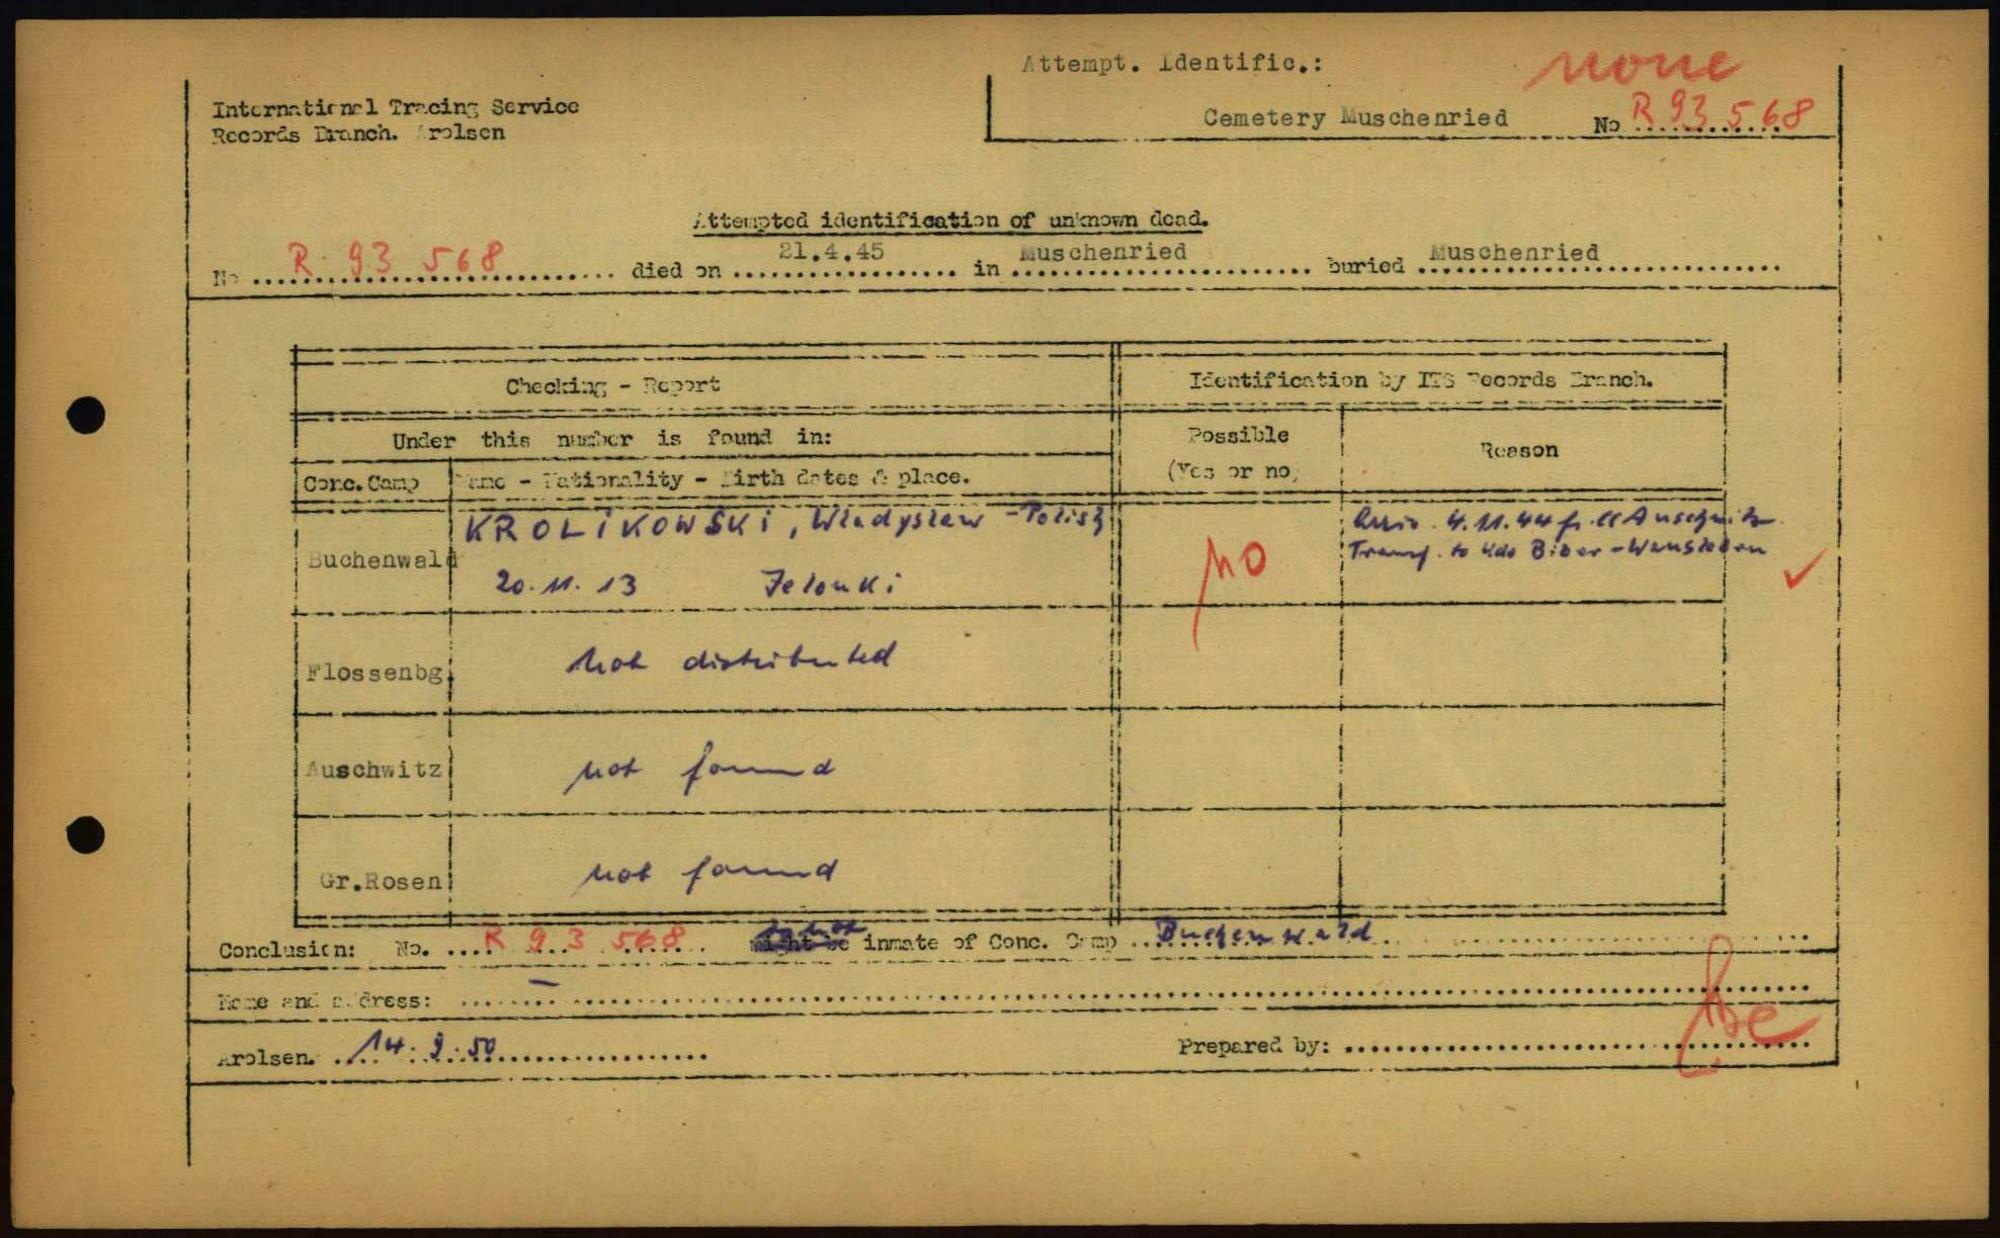 Attempt. Identific.: none
International Tracing Service
Records Branch. Arolsen
Cemetery Muschenried No R 93 568
Attempted identification of unknown dead.
No R 93 568 died on 21.4.45 in Muschenried buried Muschenried
Checking - Report
Identification by ITS Records Branch.
Under this number is found in:
Possible
(Yes or no)
Reason
Conc. Camp Name - Nationality - Birth dates & place.
Buchenwald KROLIKOWSKI, Wladyslaw - Polish
20.11.13 Jelonki
no
4.11.44 fr. Auschwitz
Transf. to Kdo Biber-Wansleben
Flossenbg. not distributed
Auschwitz not found
Gr.Rosen not found
Conclusion: No. R 93 568 is not inmate of Conc. Camp Buchenwald
Name and address: –
Arolsen. 14.9.50 Prepared by: